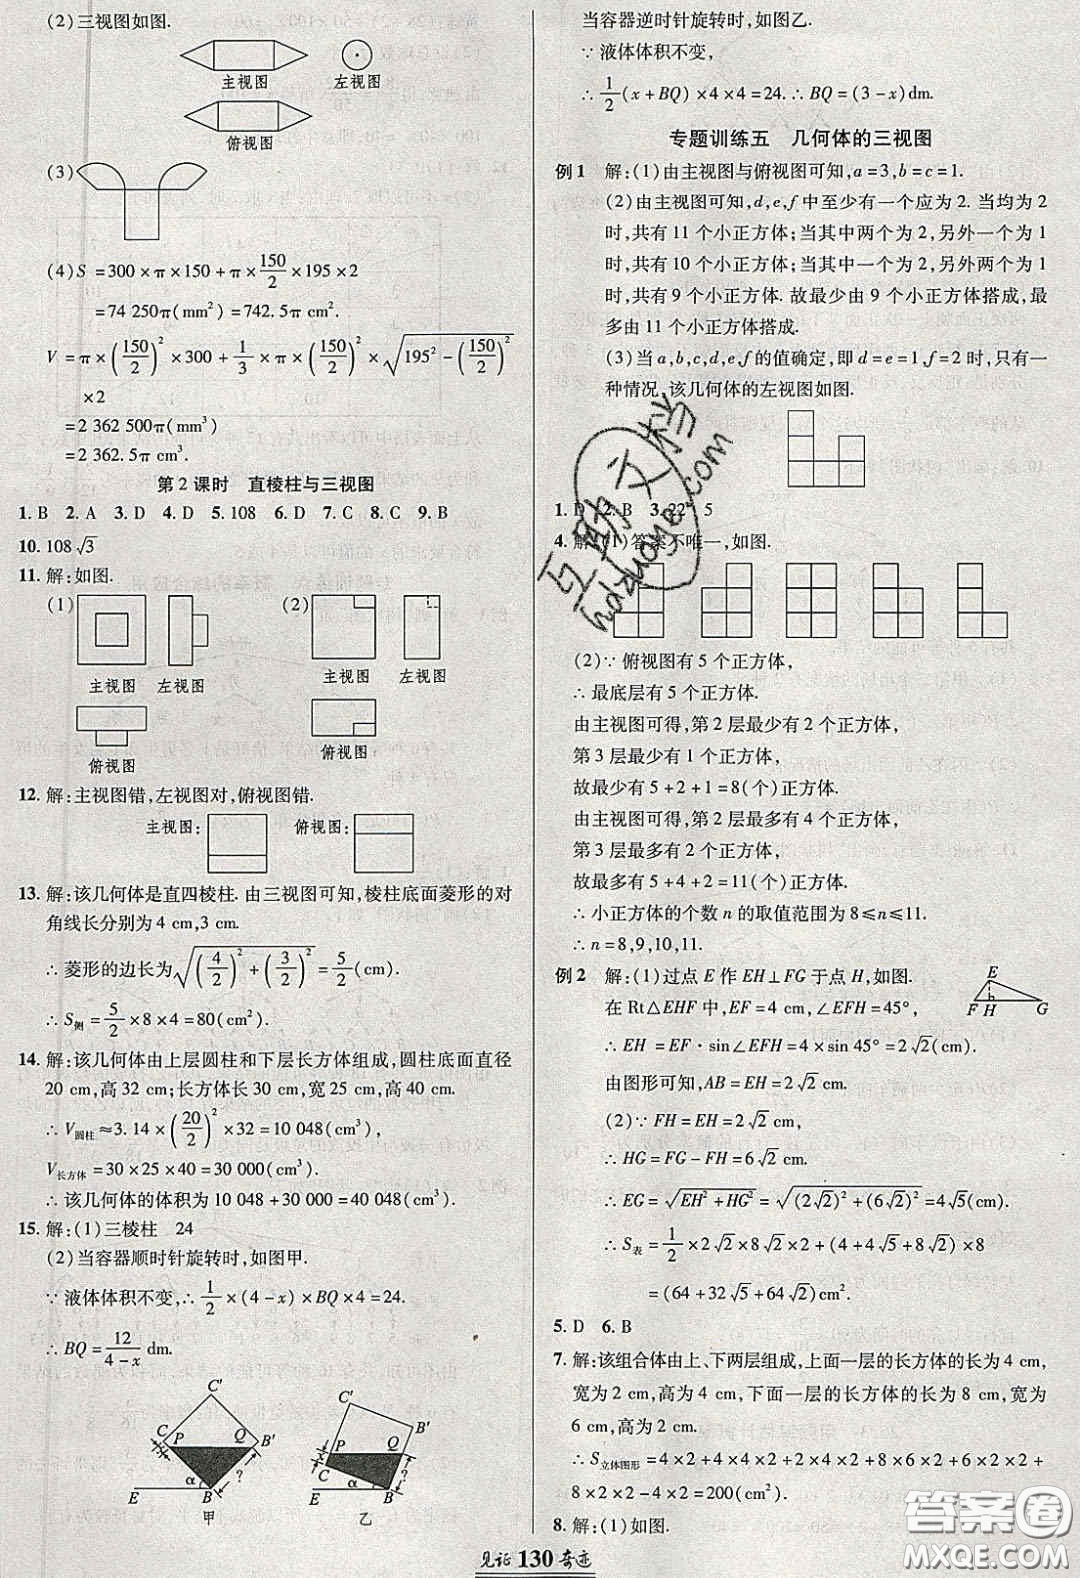 (2)三视图如图.
主视图 左视图
俯视图
(3)
(4)S =300×π×150+π×150/2×195×2
=74 250π(mm²)=742.5π cm².
V=π×(150/2)²×300+1/3×π×(150/2)²×√(195²-(150/2)²)
×2
=2 362 500π(mm³)
=2 362.5π cm³.
第 2 课时 直棱柱与三视图
1. B 2. A 3. D 4. D 5. 108 6. D 7. C 8. C 9. B
10. 108√3
11. 解:如图.
(1) (2)
主视图 左视图 主视图 左视图
俯视图 俯视图
12. 解:主视图错,左视图对,俯视图错.
主视图: 俯视图:
13. 解:该几何体是直四棱柱. 由三视图可知,棱柱底面菱形的对
角线长分别为 4 cm,3 cm.
∴ 菱形的边长为√((4/2)²+(3/2)²)=5/2(cm).
∴ S侧=5/2×8×4=80(cm²).
14. 解:该几何体由上层圆柱和下层长方体组成,圆柱底面直径
20 cm,高 32 cm;长方体长 30 cm,宽 25 cm,高 40 cm.
∴ V圆柱≈3.14×(20/2)²×32=10 048(cm³),
V长方体=30×25×40=30 000(cm³).
∴ 该几何体的体积为 10 048+30 000=40 048(cm³).
15. 解:(1)三棱柱 24
(2)当容器顺时针旋转时,如图甲.
∵ 液体体积不变,∴ 1/2×(4-x)×BQ×4=24.
∴ BQ=12/(4-x) dm.
C′ C P Q B′ α ? E B 甲
C′ B′ P Q C α ? E B 乙
当容器逆时针旋转时,如图乙.
∵ 液体体积不变,
∴ 1/2(x+BQ)×4×4=24. ∴ BQ=(3-x)dm.
专题训练五 几何体的三视图
例 1 解:(1)由主视图与俯视图可知,a=3,b=c=1.
(2)由主视图可知,d,e,f 中至少有一个应为 2. 当均为 2
时,共有 11 个小正方体;当其中两个为 2,另外一个为 1
时,共有 10 个小正方体;当其中一个为 2,另外两个为 1
时,共有 9 个小正方体. 故最少由 9 个小正方体搭成,最
多由 11 个小正方体搭成.
(3)当 a,b,c,d,e,f 的值确定,即 d=e=1,f=2 时,只有一
种情况,该几何体的左视图如图.
1. D 2. B 3. 22 5
4. 解:(1)答案不唯一,如图.
(2)∵ 俯视图有 5 个正方体,
∴ 最底层有 5 个正方体.
由主视图可得,第 2 层最少有 2 个正方体,
第 3 层最少有 1 个正方体,
故最少有 5+2+1=8(个)正方体.
由主视图可得,第 2 层最多有 4 个正方体,
第 3 层最多有 2 个正方体,
故最多有 5+4+2=11(个)正方体.
∴ 小正方体的个数 n 的取值范围为 8≤n≤11.
∴ n=8,9,10,11.
例 2 解:(1)过点 E 作 EH⊥FG 于点 H,如图.
E F H G
在 Rt△EHF 中,EF=4 cm,∠EFH=45°,
∴ EH=EF·sin∠EFH=4×sin 45°=2√2(cm).
由图形可知,AB=EH=2√2 cm.
(2)∵ FH=EH=2√2 cm,
∴ HG=FG-FH=6√2 cm.
∴ EG=√(EH²+HG²)=√((2√2)²+(6√2)²)=4√5(cm).
∴ S表=1/2×2√2×8√2×2+(4+4√5+8√2)×8√2
=(64+32√5+64√2)cm².
5. D 6. B
7. 解:该组合体由上、下两层组成,上面一层的长方体的长为 4 cm,
宽为 2 cm,高为 4 cm,下面一层的长方体的长为 8 cm,宽为
6 cm,高为 2 cm.
∴ S立体图形=4×2+4×4×2+2×4×2+8×6×2+6×2×2+
8×2×2-4×2=200(cm²).
8. 解:(1)如图.
见证 130 奇迹
互助文档
hdzuoye.com
答案圈
MXQE.COM